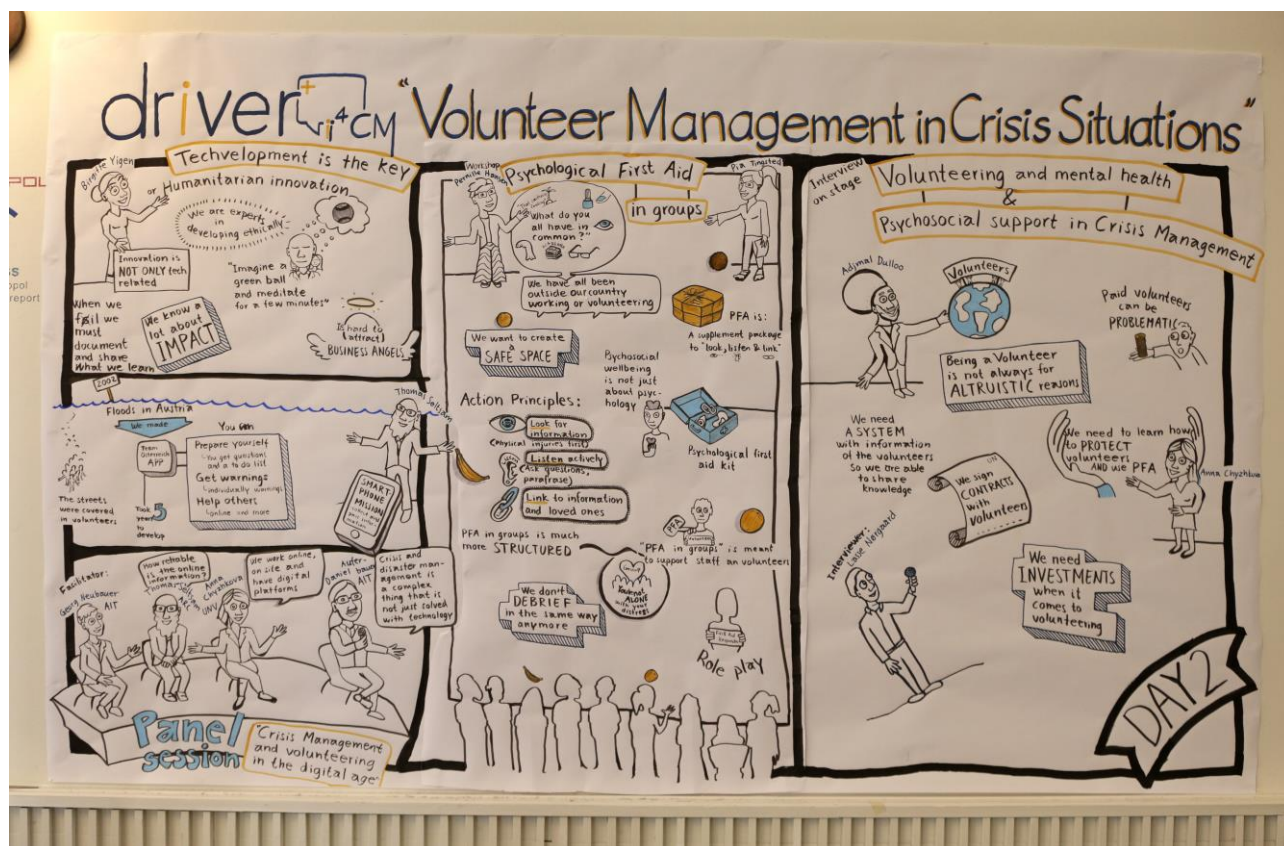 driver+
i4CM
"Volunteer Management in Crisis Situations"
Techvelopment is the key
Birgitte Yigen
or Humanitarian innovation
We are experts
in
developing ethically
Innovation is
NOT ONLY tech
related
"Imagine a
green ball
and meditate
for a few minutes"
When we
fail we
must
document
and share
what we learn
We know a
lot about
IMPACT
Is hard to
(attract)
BUSINESS ANGELS
2002
Floods in Austria
Thomas
We made
Team
APP
Took 5
years
to
develop
You can
Prepare yourself
You get questions
and a to do list
Get warnings
individually warnings
Help others
online and more
The streets
were covered
in volunteers
SMART-
PHONE
MISSION
Facilitator:
Georg Neubauer
AIT
How reliable
is the online
information?
Thomas
Anna
Chyzhkova
UNV
We work online,
on site and
have digital
platforms
Daniel
AIT
Crisis and
disaster man-
agement is
a complex
thing that is
not just solved
with technology
Panel
session
"Crisis Management
and volunteering
in the digital age"
Workshop
Pernille Hansen
Psychological First Aid
in groups
Pia Tingsted
"What do you
all have in
common?"
We have all been
outside our country
working or volunteering
We want to create
a
SAFE SPACE
PFA is:
A supplement package
to "look, listen & link"
Psychosocial
wellbeing
is not just
about psyc-
hology
Psychological first
aid kit
Action Principles:
Look for
information
(physical injuries first)
Listen actively
(Ask questions,
paraphrase)
Link to information
and loved ones
PFA in groups is much
more STRUCTURED
PFA
"PFA in groups" is meant
to support staff an volunteers
You are not
ALONE
with your
distress
We don't
DEBRIEF
in the same way
anymore
Role play
Interview
on stage
Volunteering and mental health
&
Psychosocial support in Crisis Management
Adjmal Dulloo
Volunteers
Paid volunteers
can be
PROBLEMATIC
Being a Volunteer
is not always for
ALTRUISTIC reasons
We need
A SYSTEM
with information
of the volunteers
So we are able
to share
knowledge
We sign
CONTRACTS
with
volunteers
We need to learn how
to PROTECT
volunteers
AND use PFA
Anna Chyzhkova
Interviewer:
Lasse Nørgaard
We need
INVESTMENTS
when it
comes to
volunteering
DAY 2